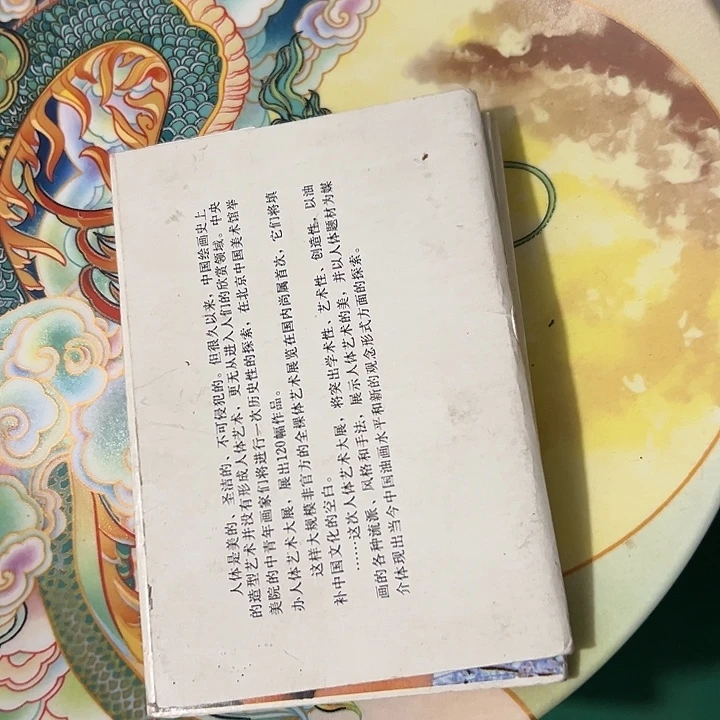 人体是美的、圣洁的、不可侵犯的。但很久以来，中国绘画史上
的造型艺术并没有形成人体艺术，更无从进入人们的欣赏领域。中央
美院的中青年画家们将进行一次历史性的探索，在北京中国美术馆举
办人体艺术大展，展出120幅作品。
这样大规模非官方的全裸体艺术展览在国内尚属首次，它们将填
补中国文化的空白。
……这次人体艺术大展，将突出学术性、艺术性、创造性，以油
画的各种流派、风格和手法，展示人体艺术的美，并以人体题材为媒
介体现出当今中国油画水平和新的观念形式方面的探索。